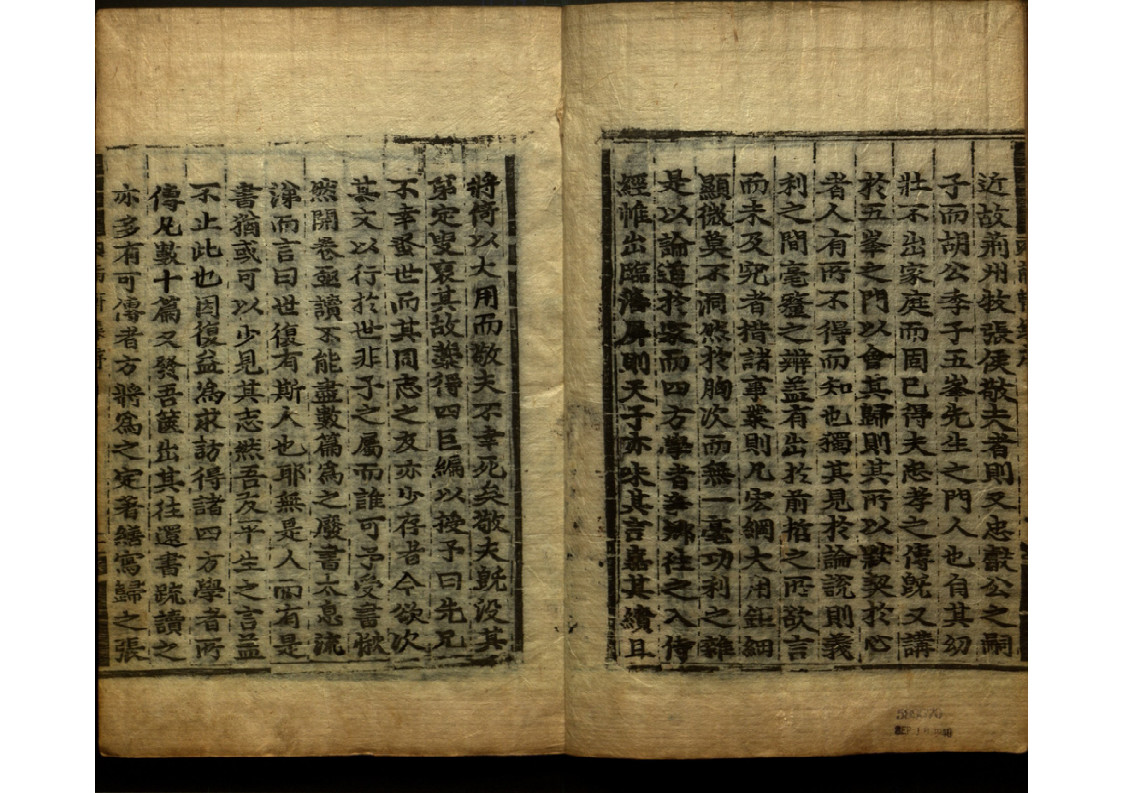 近故荊州牧張侯敬夫者則又忠獻公之嗣
子而胡公季子五峯先生之門人也自其幼
壯不出家庭而固已得夫忠孝之傳旣又講
於五峯之門以會其歸則其所以默契於心
者人有所不得而知也獨其見於論說則義
利之間毫釐之辨蓋有出於前哲之所欲言
而未及究者措諸事業則凡宏綱大用鉅細
顯微莫不洞然於胸次而無一毫功利之雜
是以論道於家而四方學者爭鄉往之入侍
經帷出臨藩屏則天子亦味其言嘉其績且
將倚以大用而敬夫不幸死矣敬夫旣沒其
弟定叟裒其故藁得四巨編以授予曰先兄
不幸蚤世而其同志之友亦少存者今欲次
其文以行於世非子之屬而誰可予受書愀
然開卷亟讀不能盡數篇爲之廢書太息流
涕而言曰世復有斯人也耶無是人而有是
書猶或可以少見其志然吾友平生之言益
不止此也因復益爲求訪得諸四方學者所
傳凡數十篇又發吾篋出其往還書疏讀之
亦多有可傳者方將爲之定著繕寫歸之張